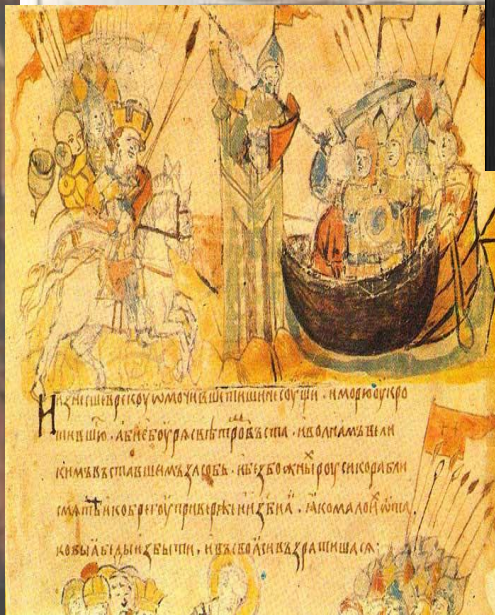 Изнесше в рекоу ѡмочивше тишине соущи . и морю оукро
тившю . абие боуря с вѣтромъ въста . и волнамъ вели
кимъ въставшимъ засобь . и безбожныⷯ роуси корабли
смяте и ко брегоу приверже и изби ꙗ . ꙗко мало иⷯ ѿ та
ковыꙗ беды избыти , и въ своꙗси възратишася :